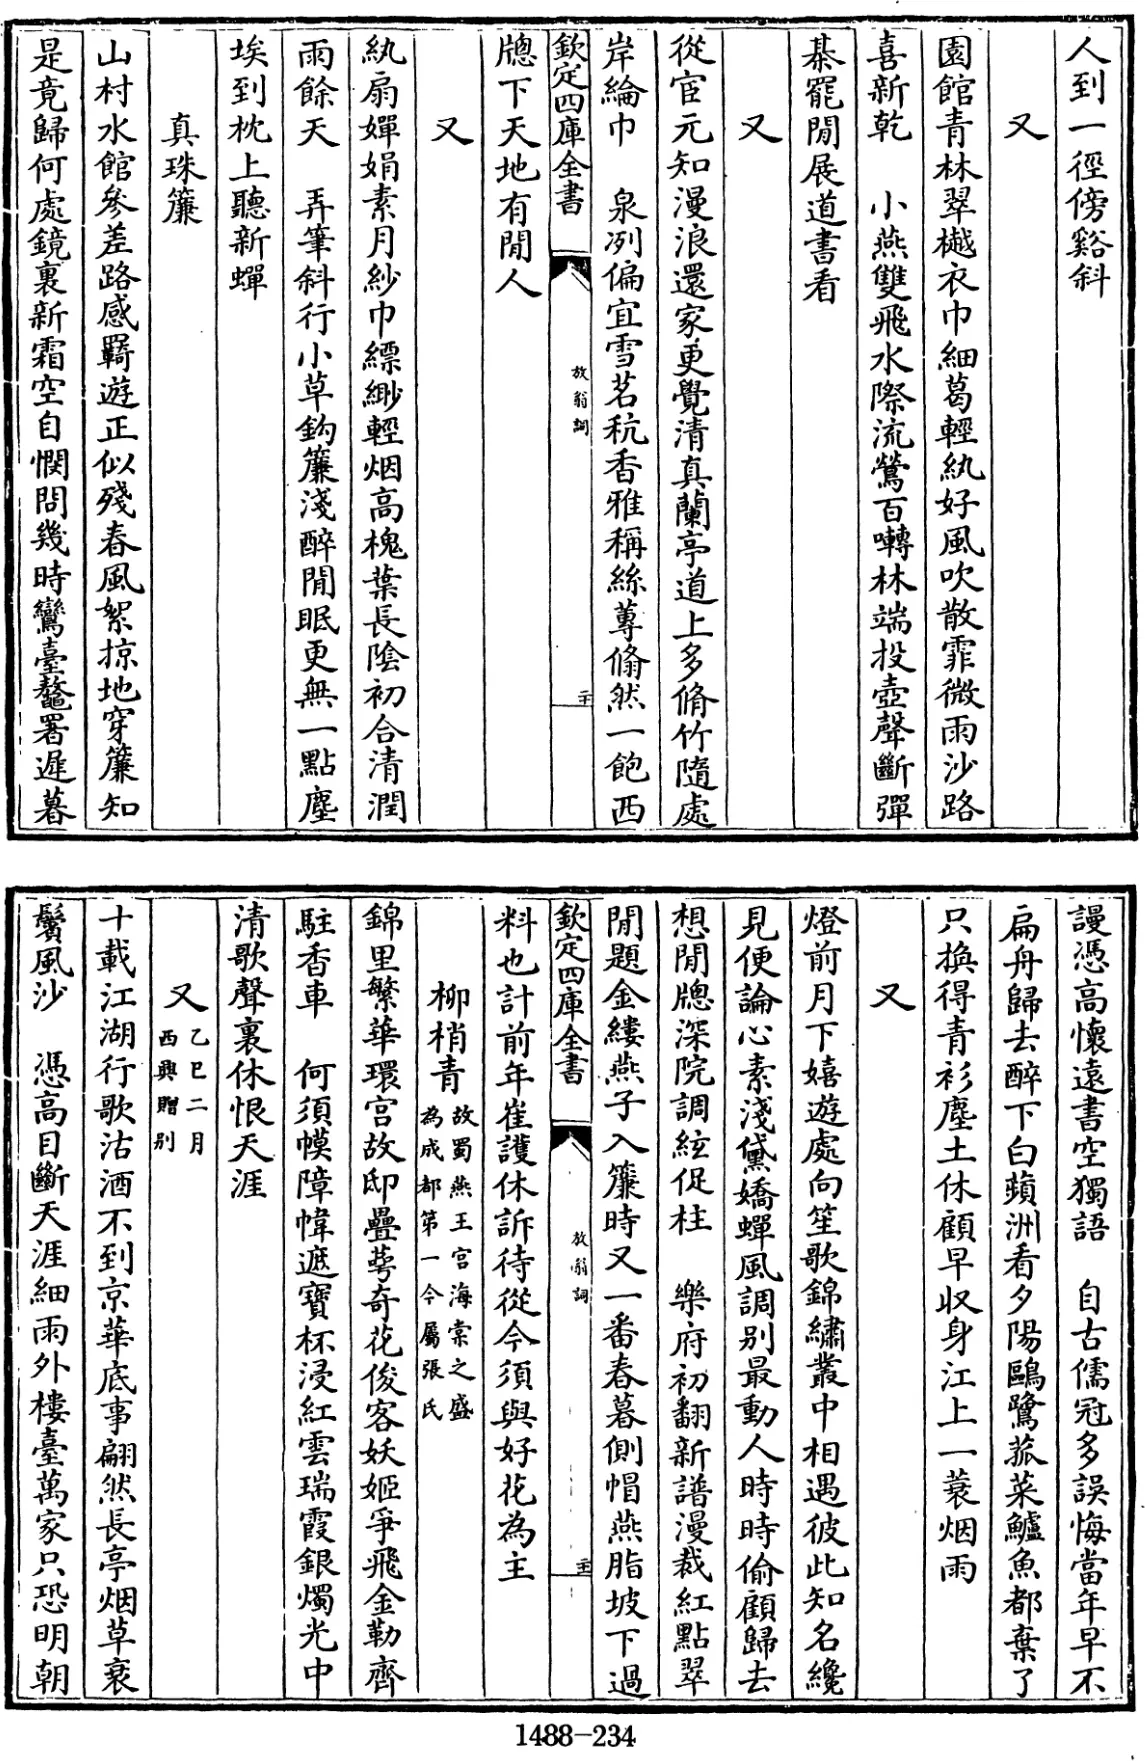 人到一徑傍谿斜
又
園館青林翠樾衣巾細葛輕紈好風吹散霏微雨沙路
喜新乾　小燕雙飛水際流鶯百囀林端投壺聲斷彈
棊罷閒展道書看
又
從宦元知漫浪還家更覺清真蘭亭道上多脩竹隨處
岸綸巾　泉冽偏宜雪茗秔香雅稱絲蓴翛然一飽西
欽定四庫全書　放翁詞　二十
牕下天地有閒人
又
紈扇嬋娟素月紗巾縹緲輕烟高槐葉長陰初合清潤
雨餘天　弄筆斜行小草鈎簾淺醉閒眠更無一點塵
埃到枕上聽新蟬
真珠簾
山村水館參差路感羇遊正似殘春風絮掠地穿簾知
是竟歸何處鏡裏新霜空自憫問幾時鸞臺鼇署遲暮
謾憑高懷遠書空獨語　自古儒冠多誤悔當年早不
扁舟歸去醉下白蘋洲看夕陽鷗鷺菰菜鱸魚都棄了
只換得青衫塵土休顧早收身江上一蓑烟雨
又
燈前月下嬉遊處向笙歌錦繡叢中相遇彼此知名纔
見便論心素淺黛嬌蟬風調别最動人時時偷顧歸去
想閒牕深院調絃促柱　樂府初翻新譜漫裁紅點翠
閒題金縷燕子入簾時又一番春暮側帽燕脂坡下過
欽定四庫全書　放翁詞　二十一
料也計前年崔護休訴待從今須與好花為主
柳梢青　故蜀燕王宫海棠之盛
為成都第一今屬張氏
錦里繁華環宫故邸疊萼奇花俊客妖姬爭飛金勒齊
駐香車　何須幙障幃遮寶杯浸紅雲瑞霞銀燭光中
清歌聲裏休恨天涯
又　乙巳二月
西興贈别
十載江湖行歌沽酒不到京華底事翩然長亭烟草衰
鬢風沙　憑高目斷天涯細雨外樓臺萬家只恐明朝
1488-234